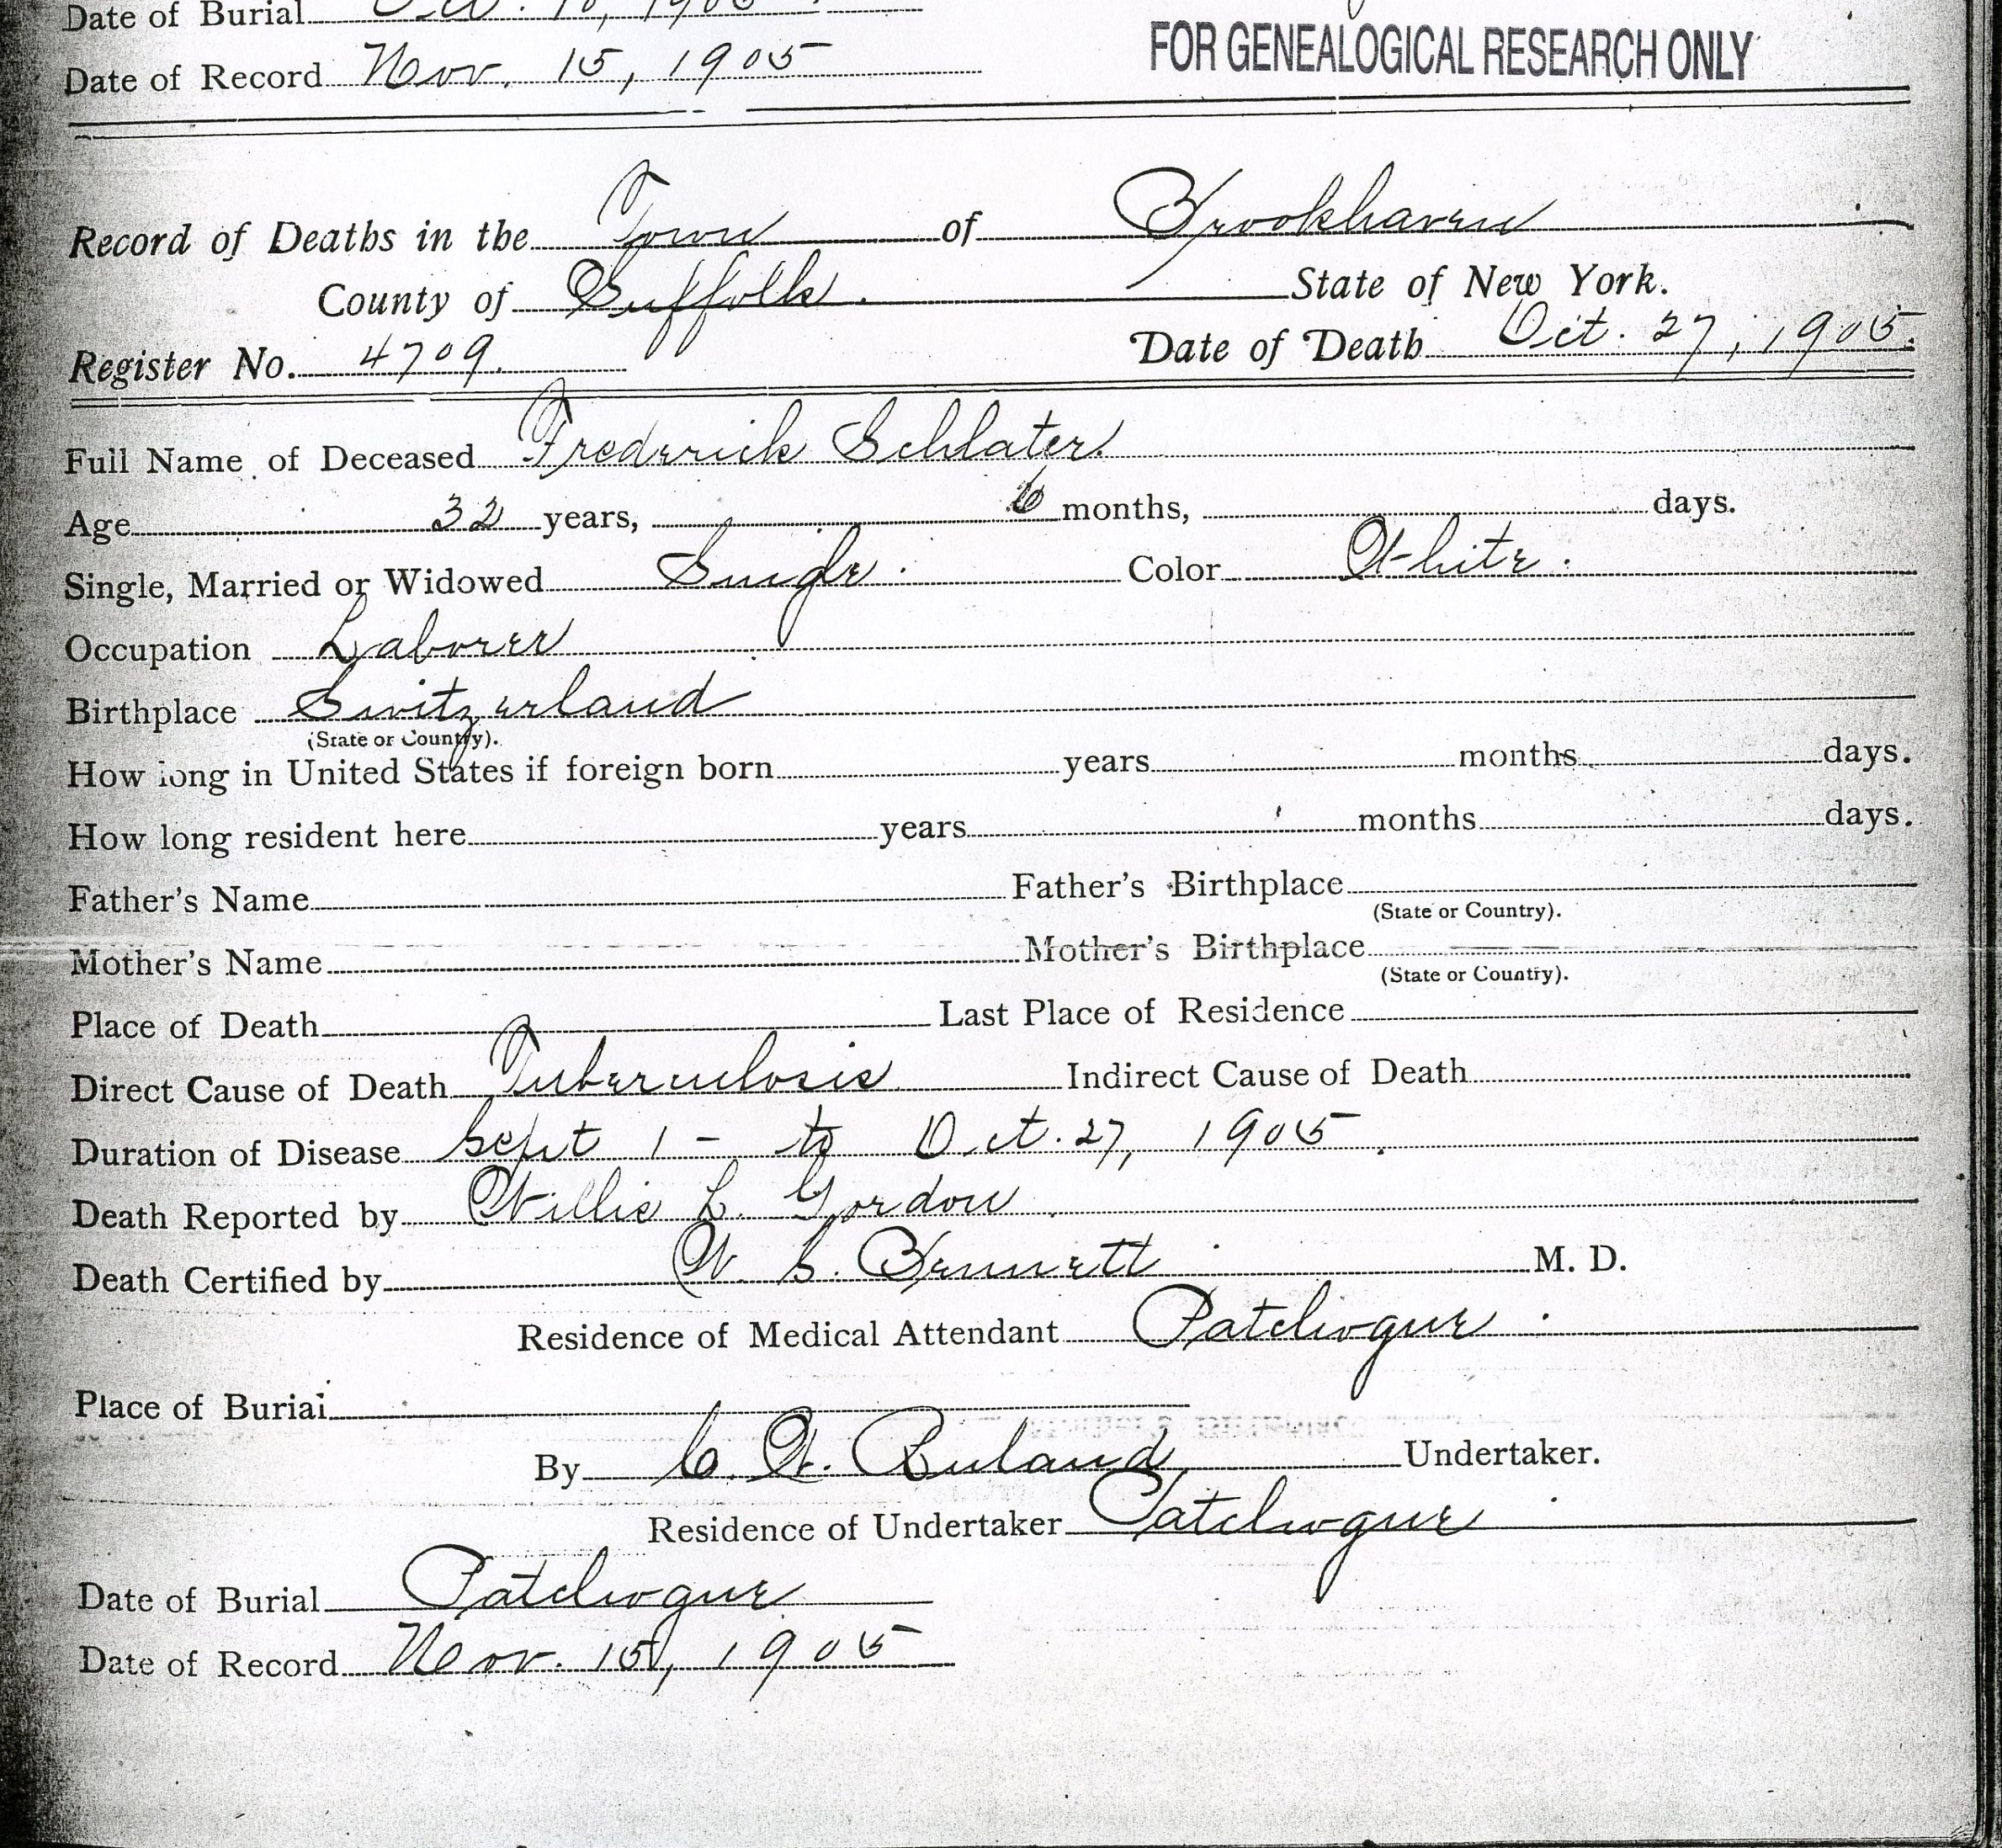 Date of Burial 1905
Date of Record Nov. 15, 1905
FOR GENEALOGICAL RESEARCH ONLY
Record of Deaths in the Town of Brookhaven
County of Suffolk. State of New York.
Register No. 4709. Date of Death Oct. 27, 1905.
Full Name of Deceased Frederick Schlater.
Age 32 years, 6 months, days.
Single, Married or Widowed Single. Color White.
Occupation Laborer
Birthplace Switzerland
(State or Country).
How long in United States if foreign born years months days.
How long resident here years months days.
Father's Name Father's Birthplace
(State or Country).
Mother's Name Mother's Birthplace
(State or Country).
Place of Death Last Place of Residence
Direct Cause of Death Tuberculosis Indirect Cause of Death
Duration of Disease Sept 1 - to Oct. 27, 1905.
Death Reported by Willis L. Gordon.
Death Certified by W. S. Bennett M. D.
Residence of Medical Attendant Patchogue.
Place of Burial
By C. W. Ruland Undertaker.
Residence of Undertaker Patchogue.
Date of Burial Patchogue
Date of Record Nov. 15, 1905